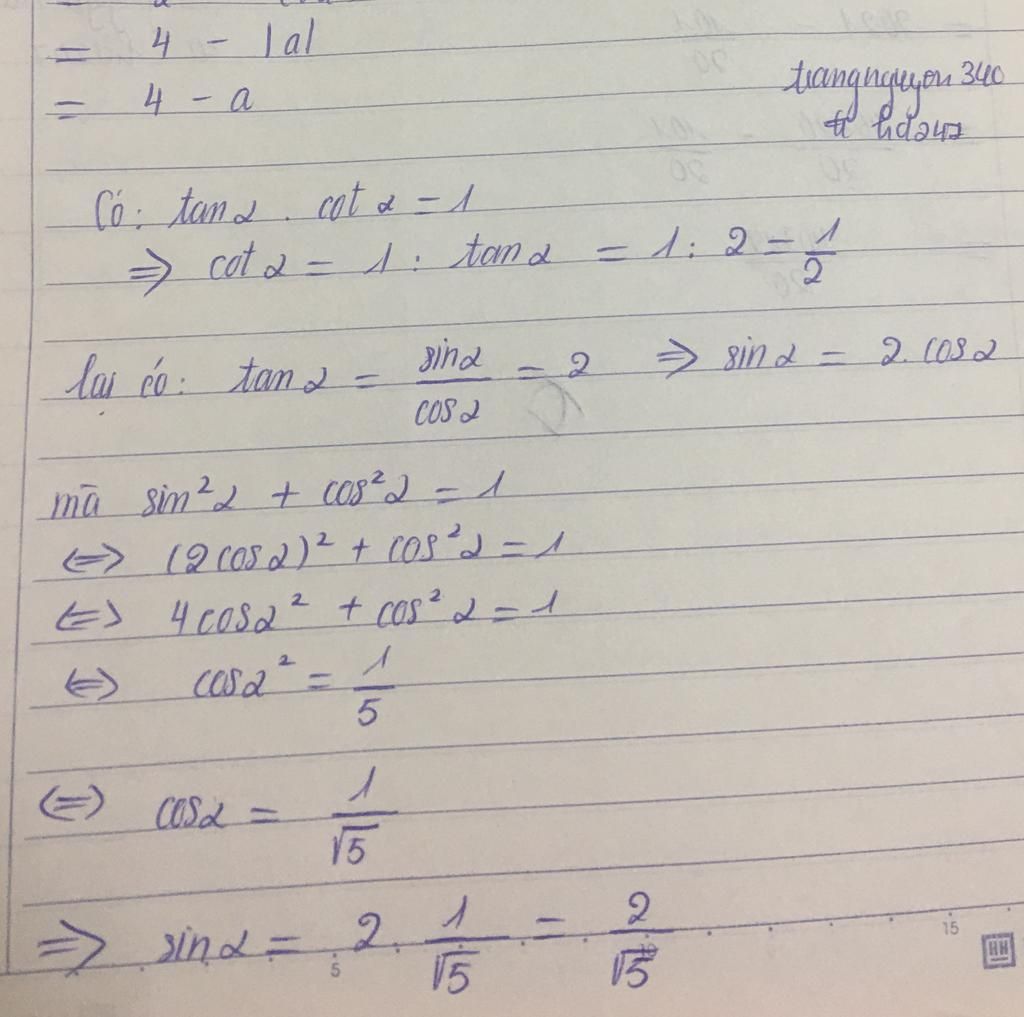 = 4 - |a|
= 4 - a
trangnguyen 340
hd247
Có: tan α . cot α = 1
⇒ cot α = 1 : tan α = 1 : 2 = 1/2
lại có: tan α = sin α / cos α = 2 ⇒ sin α = 2. cos α
mà sin² α + cos² α = 1
⇔ (2 cos α)² + cos² α = 1
⇔ 4 cos α² + cos² α = 1
⇔ cos α² = 1/5
⇔ cos α = 1/√5
⇒ sin α = 2 . 1/√5 = 2/√5
5 10 15